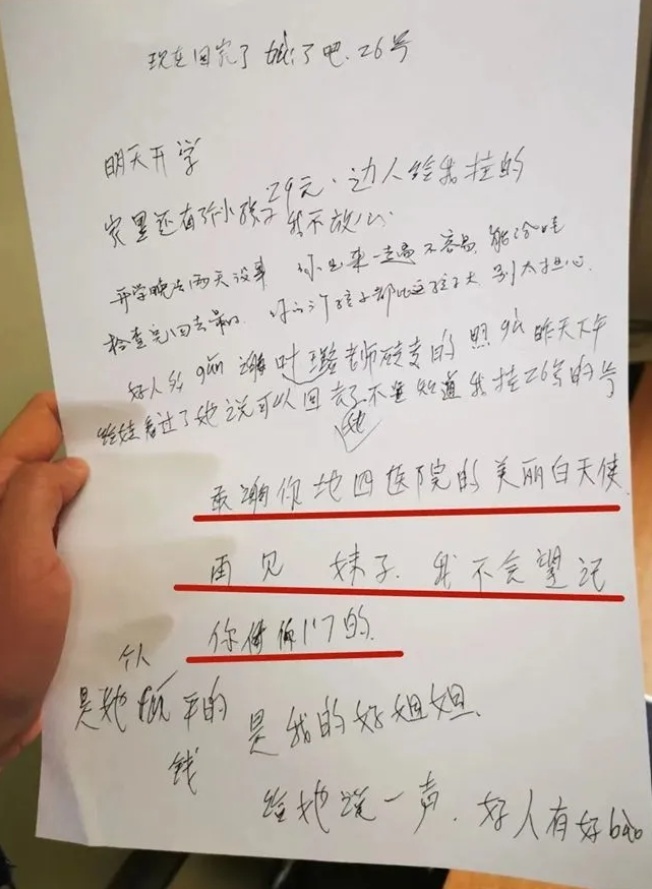 现在回完了 城了吧.26号
明天开学
家里还有个小孩子29元.边人给我挂的
我不放心.
开学晚去两天没事 你出来一趟不容易.能给娃
检查完回去最好. 你的孩子都比这孩子大.别太担心.
好人 gǎn 谢 叶璐老师 的照gù昨天下午
给娃看过了她说可以回去了不 知道我挂26号的号
她
感谢你地四医院的美丽白天使.
再见 妹子.我不会望记
你们的.
个人
是她 平的 是我的好姐姐.
钱
给她说一声.好人有好bào